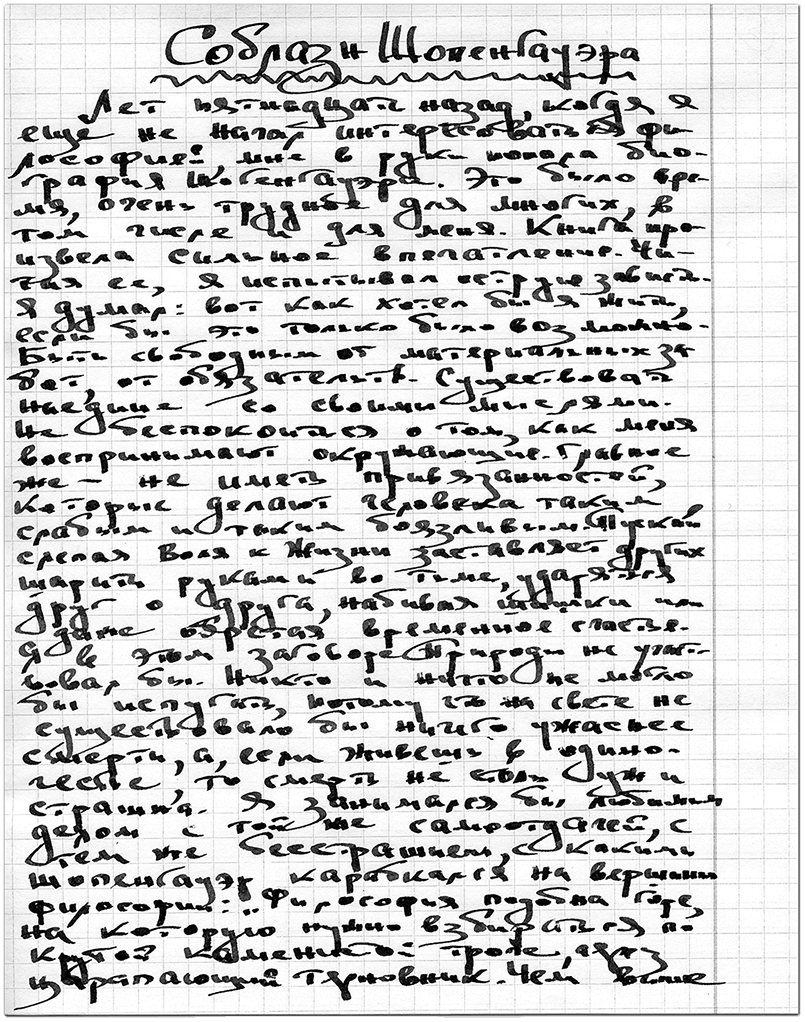 Соблазн Шопенгауэра
Лет пятнадцать назад, когда я
еще не начал интересоваться фи-
лософией, мне в руки попала био-
графия Шопенгауэра. Это было вре-
мя, очень трудное для многих, в
том числе и для меня. Книга про-
извела сильное впечатление. Чи-
тая ее, я испытывал острую зависть.
Я думал: вот как хотел бы я жить,
если бы это только было возможно.
Быть свободным от материальных за-
бот, от обязательств. Существовать
наедине со своими мыслями.
Не беспокоиться о том, как меня
воспринимают окружающие. Главное
же – не иметь привязанностей,
которые делают человека таким
слабым и таким боязливым. Пускай
слепая Воля к Жизни заставляет других
шарить руками во тьме, ударяться
друг о друга, набивая шишки или
даже обретая временное счастье.
Я в этом заговоре Природы не участ-
вовал бы. Никто и ничто не могло
бы испугать, потому что на свете не
существовало бы ничего ужаснее
смерти, а, если живешь в одино-
честве, то смерть не столь уж и
страшна. Я занимался бы любимым
делом с той же самоотдачей, с
тем же бесстрашием, с каким
Шопенгауэр карабкался на вершины
философии: „Философия подобна горе,
на которую нужно взбираться по
крутой каменистой тропе, через
царапающий терновник. Чем выше